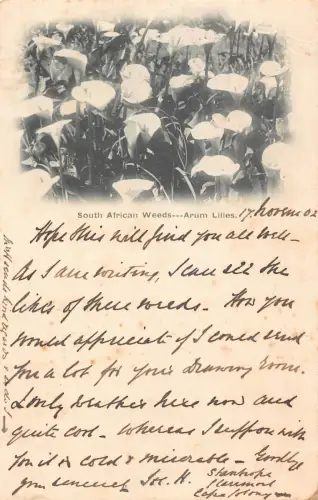 South African Weeds---Arum Lilies.
17. Novem 02
Hope this will find you all well-
As I am writing, I can see the
likes of these weeds. How you
would appreciate if I could send
you a lot for your drawing room.
Lovely weather here now and
quite cool - whereas I suppose with
you it is cold & miserable - Goodbye
yours sincerely Jos. H.
Stanhope
Claremont
Cape Colony